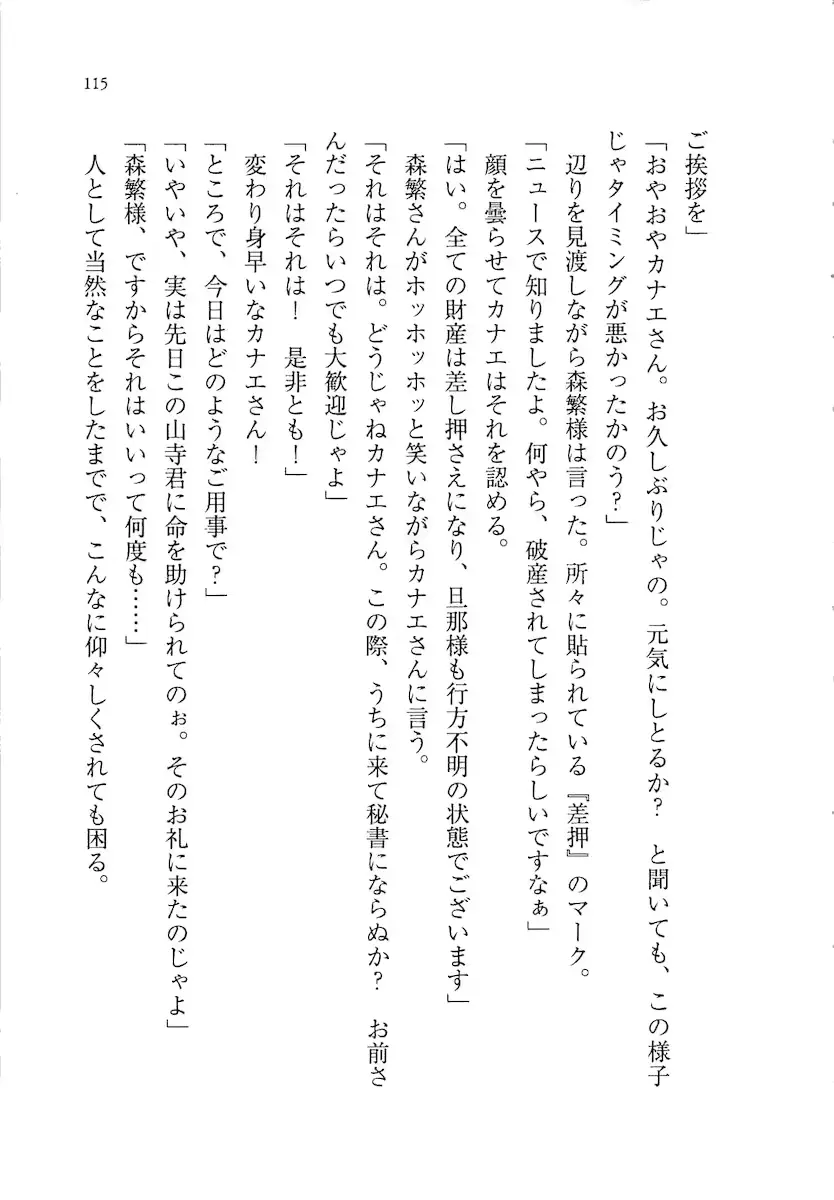 115
ご挨拶を」
「おやおやカナエさん。お久しぶりじゃの。元気にしとるか?　と聞いても、この様子
じゃタイミングが悪かったかのう?」
　辺りを見渡しながら森繁様は言った。所々に貼られている『差押』のマーク。
「ニュースで知りましたよ。何やら、破産されてしまったらしいですなぁ」
　顔を曇らせてカナエはそれを認める。
「はい。全ての財産は差し押さえになり、旦那様も行方不明の状態でございます」
　森繁さんがホッホッホッと笑いながらカナエさんに言う。
「それはそれは。どうじゃねカナエさん。この際、うちに来て秘書にならぬか?　お前さ
んだったらいつでも大歓迎じゃよ」
「それはそれは!　是非とも!」
　変わり身早いなカナエさん!
「ところで、今日はどのようなご用事で?」
「いやいや、実は先日この山寺君に命を助けられてのぉ。そのお礼に来たのじゃよ」
「森繁様、ですからそれはいいって何度も……」
　人として当然なことをしたまでで、こんなに仰々しくされても困る。